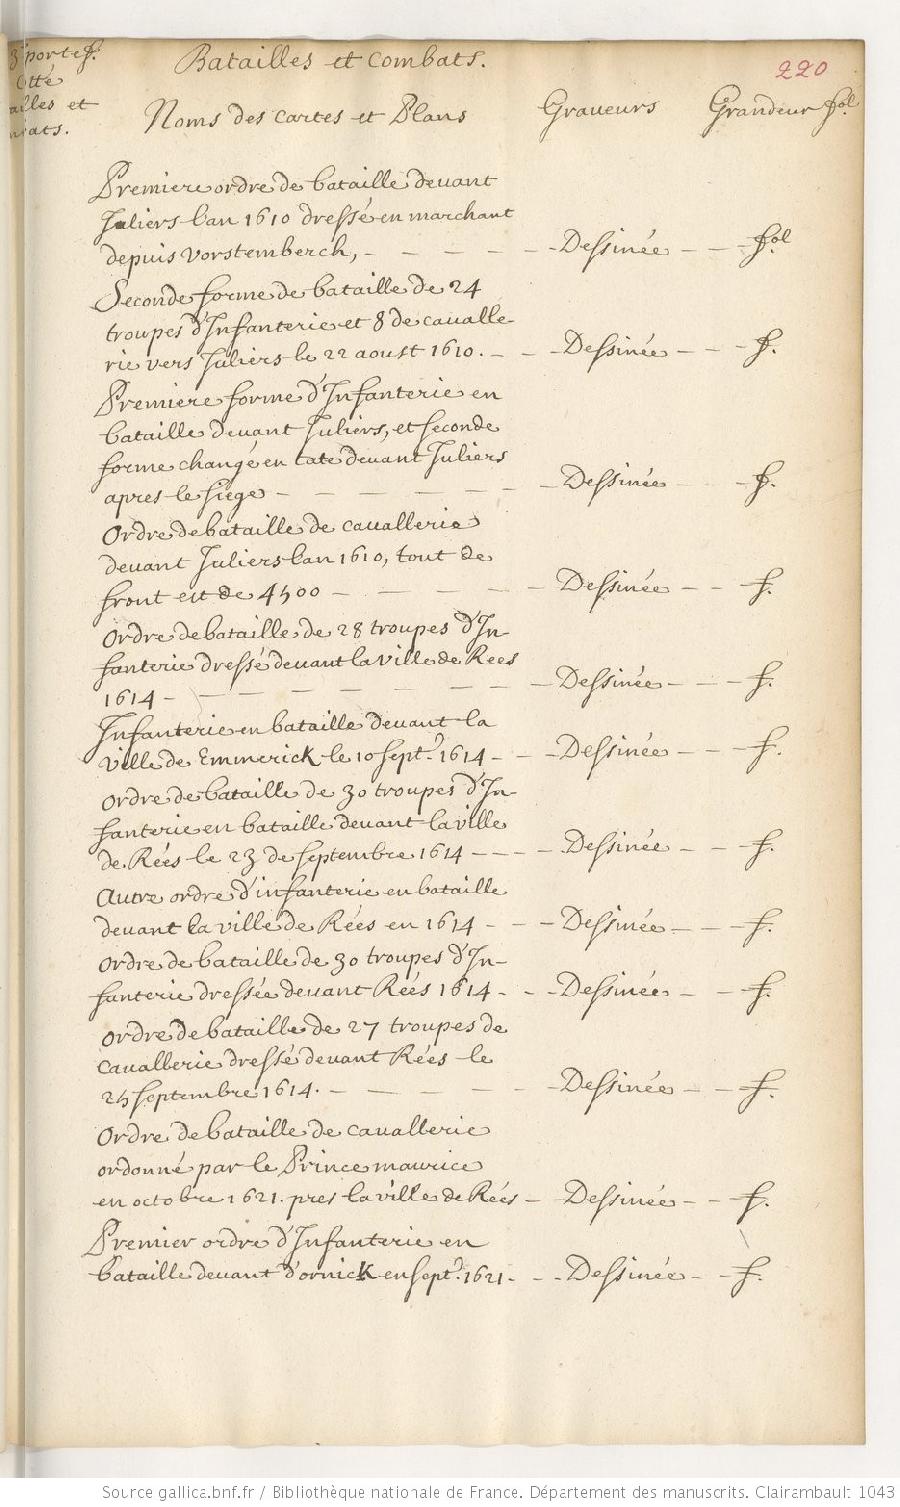 3e portef.
Cotté
ailles et
ats.
Batailles et Combats.
220
Noms des cartes et Plans Graveurs Grandeur fol.
Premiere ordre de bataille devant
Juliers l'an 1610 dressé en marchant
depuis Vorstemberch, - - - - - Dessinée - - fol.
Seconde forme de bataille de 24
troupes d'Infanterie et 8 de cavalle-
rie vers Juliers le 22 aoust 1610. - - - Dessinée - - - f.
Premiere forme d'Infanterie en
bataille devant Juliers, et seconde
forme changé en devant Juliers
apres le siege - - - - - - Dessinée - f.
Ordre de bataille de cavallerie
devant Juliers l'an 1610, tout de
front est de 4500 - - - - - Dessinée - - f.
Ordre de bataille de 28 troupes d'In-
fanterie dressé devant la ville de Rees
1614 - - - - - - - - Dessinée - - - f.
Infanterie en bataille devant la
ville de Emmerick le 10 sept.e 1614 - - - Dessinée - - - f.
Ordre de bataille de 30 troupes d'In-
fanterie en bataille devant la ville
de Rées le 23 de septembre 1614 - - - - Dessinée - - - f.
Autre ordre d'infanterie en bataille
devant la ville de Rées en 1614 - - - Dessinée - - - f.
Ordre de bataille de 30 troupes d'In-
fanterie dressée devant Rées 1614 - - - Dessinée - - f.
Ordre de bataille de 27 troupes de
cavallerie dressé devant Rées le
25 septembre 1614. - - - - - Dessinée - - - f.
Ordre de bataille de cavallerie
ordonné par le Prince maurice
en octobre 1621. pres la ville de Rées - Dessinée - - f.
Premier ordre d'Infanterie en
bataille devant Dornick en sept.e 1621 - - - Dessinée - - f.
Source gallica.bnf.fr / Bibliothèque nationale de France. Département des manuscrits. Clairambault 1043